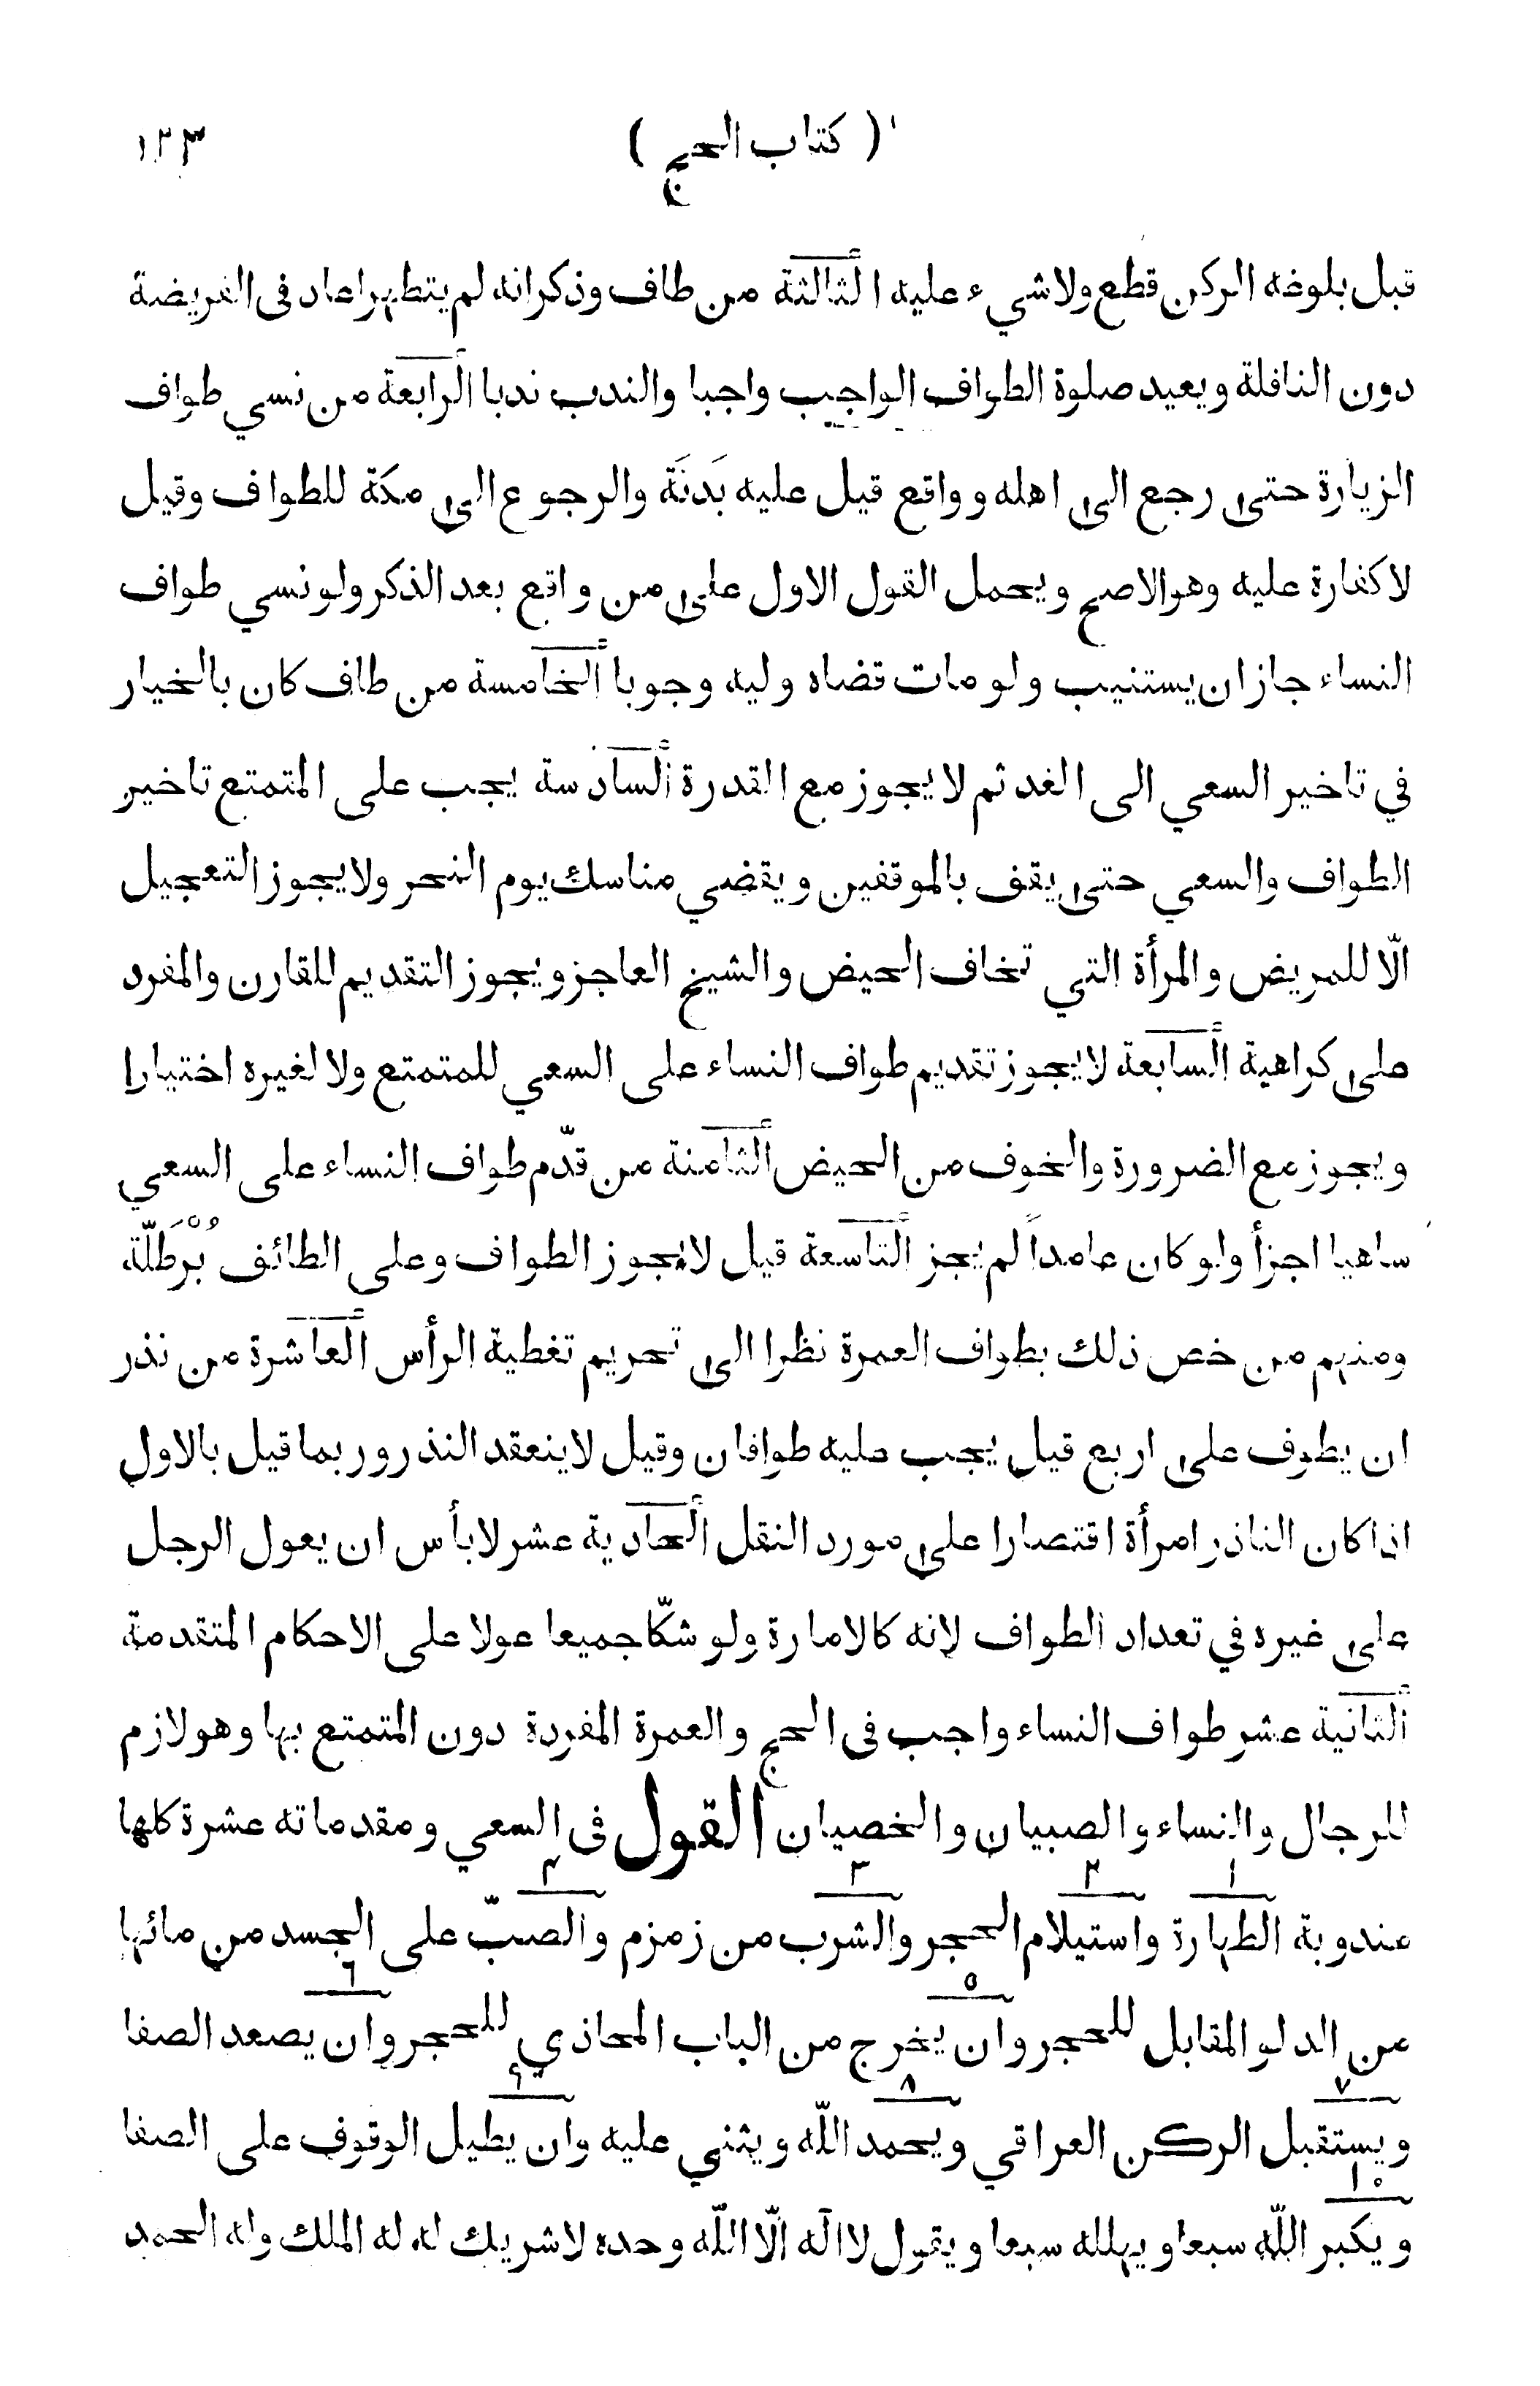 ( كتاب الحج ) ١٢٣
قبل بلوغه الركن قطع ولا شيء عليه الثالثة من طاف وذكر انه لم يتطهر اعاد فى الفريضة
دون النافلة ويعيد صلوة الطواف الواجب واجبا والندب ندبا الرابعة من نسي طواف
الزيارة حتى رجع الى اهله وواقع قيل عليه بَدنَة والرجوع الى مكة للطواف وقيل
لا كفارة عليه وهو الاصح ويحمل القول الاول على من واقع بعد الذكر ولو نسي طواف
النساء جاز ان يستنيب ولو مات قضاه وليه وجوبا الخامسة من طاف كان بالخيار
في تاخير السعي الى الغد ثم لا يجوز مع القدرة السادسة يجب على المتمتع تاخير
الطواف والسعي حتى يقف بالموقفين ويقضي مناسك يوم النحر ولا يجوز التعجيل
الّا للمريض والمرأة التي تخاف الحيض والشيخ العاجز ويجوز التقديم للقارن والمفرد
على كراهية السابعة لا يجوز تقديم طواف النساء على السعي للمتمتع ولا لغيره اختيارا
ويجوز مع الضرورة والخوف من الحيض الثامنة من قدّم طواف النساء على السعي
ساهيا اجزأ ولو كان عامداً لم يجز التاسعة قيل لا يجوز الطواف وعلى الطائف بُرْطَلّة
ومنهم من خص ذلك بطواف العمرة نظرا الى تحريم تغطية الرأس العاشرة من نذر
ان يطوف على اربع قيل يجب عليه طوافان وقيل لا ينعقد النذر وربما قيل بالاول
اذا كان الناذر امرأة اقتصارا على مورد النقل الحادية عشر لا بأس ان يعول الرجل
على غيره في تعداد الطواف لانه كالامارة ولو شكّا جميعا عولا على الاحكام المتقدمة
الثانية عشر طواف النساء واجب فى الحج والعمرة المفردة دون المتمتع بها وهو لازم
للرجال والنساء والصبيان والخصيان القول فى السعي ومقدماته عشرة كلها
١ ٢ ٣ ٤
مندوبة الطهارة واستيلام الحجر والشرب من زمزم والصبّ على الجسد من مائها
٥ ٦
من الدلو المقابل للحجر وان يخرج من الباب المحاذي للحجر وان يصعد الصفا
٧ ٨ ٩
ويستقبل الركن العراقي ويحمد اللّه ويثني عليه وان يطيل الوقوف على الصفا
١٠
ويكبر اللّه سبعا ويهلله سبعا ويقول لا اله الّا اللّه وحده لا شريك له له الملك وله الحمد